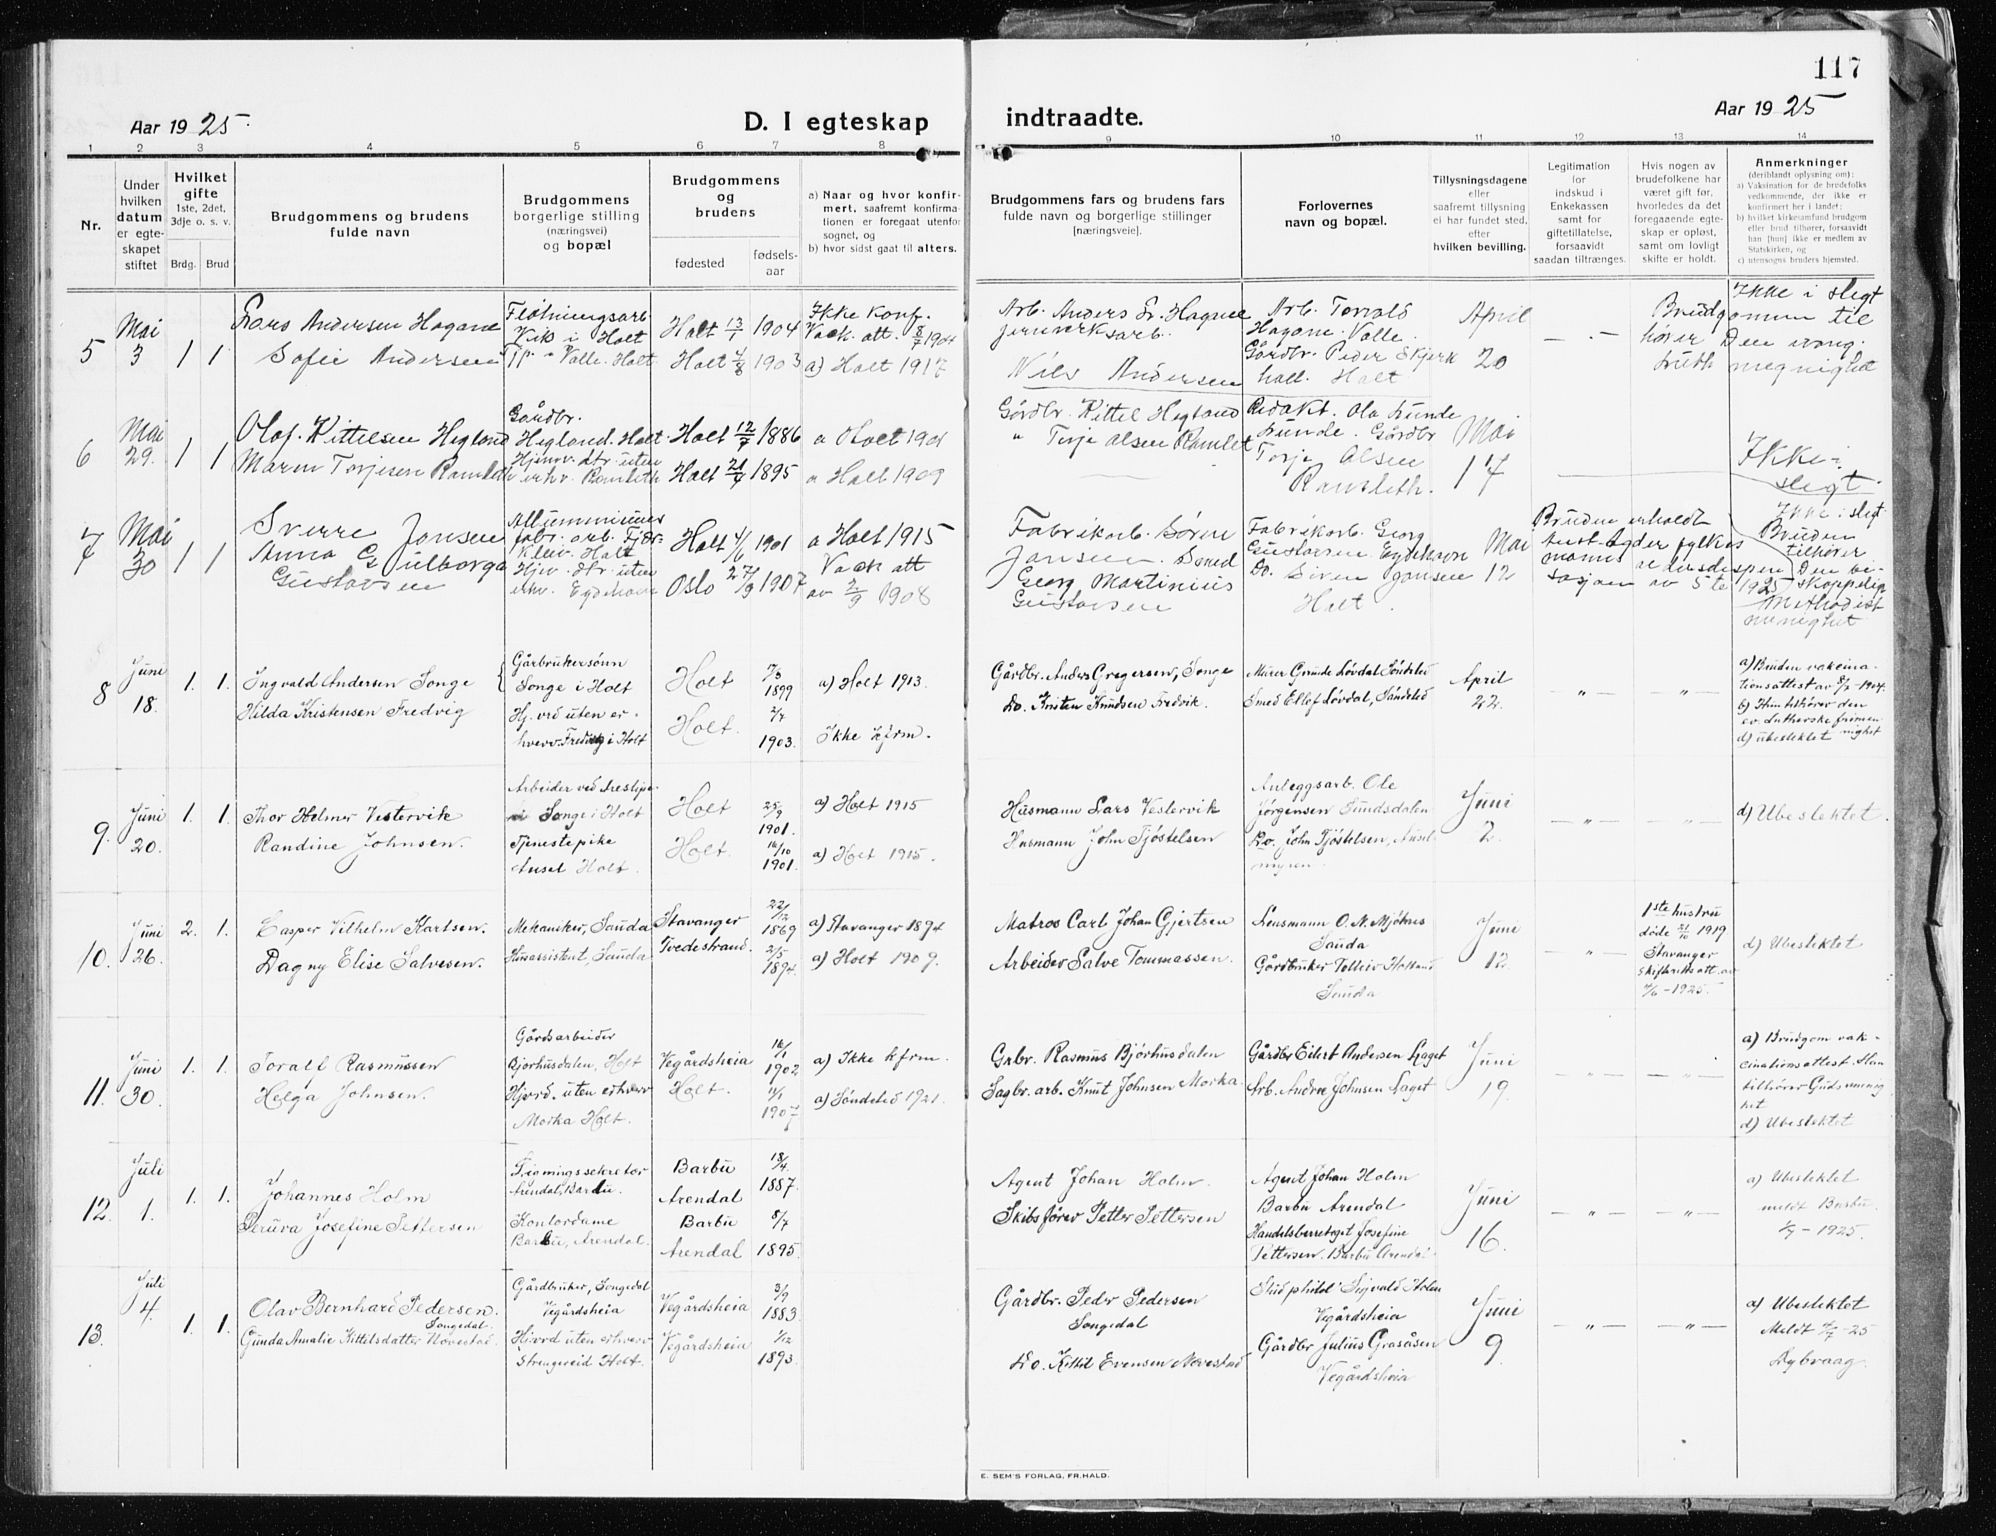 117
Aar 1925.
D. I egteskap
indtraadte.
Aar 1925
1 2 3 4 5 6 7 8 9 10 11 12 13 14
Nr.
Under hvilken datum er egteskapet stiftet
Hvilket gifte 1ste, 2det, 3dje o. s. v.
Brdg. Brud
Brudgommens og brudens fulde navn
Brudgommens borgerlige stilling (næringsvei) og bopæl
Brudgommens og brudens
fødested
fødsels-aar
a) Naar og hvor konfirmert, saafremt konfirmationen er foregaat utenfor sognet, og
b) hvor sidst gaat til alters.
Brudgommens fars og brudens fars fulde navn og borgerlige stillinger [næringsveie].
Forlovernes navn og bopæl.
Tillysningsdagene eller saafremt tillysning ei har fundet sted, efter hvilken bevilling.
Legitimation for indskud i Enkekassen samt for giftetillatelse, forsaavidt saadan tiltrænges.
Hvis nogen av brudefolkene har været gift før, hvorledes da det foregaaende egteskap er opløst, samt om lovligt skifte er holdt.
Anmerkninger (deriblandt oplysning om):
a) Vaksination for de brudefolks vedkommende, der ikke er konfirmert her i landet;
b) hvilket kirkesamfund brudgom eller brud tilhører, forsaavidt han [hun] ikke er medlem av Statskirken, og
c) utensogns bruders hjemsted.
5 Mai 3 1 1
Lars Andersen Hagane
Sofie Andersen
Fløtningsarb. Vik i Holt
Valle. Holt
Holt 13/1 1904
Holt 4/8 1903
Ikke konf. Vack. att. 8/7 1904
a) Holt 1917
Arb. Anders Hagane jernverksarb.
Nils Andersen
Arb. Torvald Hagane. Valle.
Gårdbr. Peder Skjerkholt. Holt
April 20
— - —
Brudgommen tilhører Den evang. luth menighet
Ikke i slegt
6 Mai 29. 1 1
Olaf Kittelsen Hegland
Maren Torjesen Ramleth
Gårdbr. Hegland. Holt
Hjemv. dtr uten erhv. Ramleth
Holt 12/7 1886
Holt 21/4 1895
a Holt 1901
a Holt 1909
Gårdbr. Kittel Hegland
" Torje Olsen Ramlet
Redakt. Ola Lunde
Lunde. Gårdbr Torje Olsen Ramsleth.
Mai 17
Ikke i slegt.
7 Mai 30 1 1
Sverre Jansen
Anna Gulborga Gustavsen
Alluminiums fabr. arb. Fjærkleiv. Holt
Hjv. dtr uten erhv. Eydehavn
Holt 4/6 1901
Oslo 27/9 1907
a Holt 1915
Vack att av 2/9 1908
Fabrikarb. Søren Jansen. Smed
Georg Martinius Gustavsen
Fabrikarb. Georg Gustavsen Eydehavn
Do. Søren Jansen Holt.
Mai 12
Bruden erholdt Aust-Agder fylkesmanns aldersdispensasjon av 5te 1925
Ikke i slegt
Bruden tilhører Den biskoppelige Methodist menighet
8 Juni 18. 1. 1.
Ingvald Andersen Songe
Hilda Kristensen Fredvig
Gårbrukersønn Songe i Holt
Hj. ved uten erhverv. Fredvig i Holt
Holt 7/3 1899
Holt. 2/7 1903.
a) Holt 1913.
Ikke kfrm.
Gårdbr. Anders Gregersen, Songe
Do. Kristen Knudsen Fredvik.
Murer Gunde Løvdal Søndeled
Smed Ellef Løvdal, Søndeled
April 22
— " —
— " —
a) Bruden vakcinationsattest av 8/7-1904.
b) Hun tilhører den ev. Lutherske frimenighet
d) ubeslektet
9. Juni 20. 1. 1.
Thor Helmer Vestervik
Randine Johnsen.
Arbeider ved Songe i Holt
Tjenestepike Ausel Holt.
Holt 25/9 1901.
Holt. 16/10 1901.
a) Holt 1915
a) Holt 1915.
Husmann Lars Vestervik
Husmann John Tjøstelsen
Anleggsarb. Ole Jørgensen Sundsdalen
Do. John Tjøstelsen, Auselmyren.
Juni 2.
— " —
— " —
d) Ubeslektet.
10. Juni 26. 2. 1.
Casper Vilhelm Karlsen.
Dagny Elise Salvesen.
Mekaniker, Sauda
Husassistent, Sauda
Stavanger 22/12 1869
Tvedestrand. 2/5 1894.
a) Stavanger 1894
a) Holt 1909.
Matros Carl Johan Gjertsen
Arbeider Salve Tommassen.
Lensmann O. N. Mjøhus Sauda
Gårdbruker Tolleiv Holland Sauda
Juni 12
— " —
1ste hustru døde 21/10 1919 Stavanger skifteretts att. av 4/6-1925.
d) Ubeslektet
11. Juni 30. 1. 1.
Toralf Rasmussen
Helga Johnsen.
Gårdsarbeider Bjorhusdalen, Holt
Hjvrd. uten erhverv Morka Holt.
Vegårdsheia 16/1 1902
Holt. 11/1 1907
a) Ikke kfrm.
a) Søndeled 1921.
Grbr. Rasmus Bjørhusdalen
Sagbr. arb. Knut Johnsen Morka.
Gårdbr Eilert Andersen Laget
Arb. Andree Johnsen Laget
Juni 19.
— " —
— " —
a) Brudgom vakcinationsattest. Han tilhører Guds menighet
d) Ubeslektet
12. Juli 1. 1. 1.
Johannes Holm
Peruva Josefine Pettersen
Ligningssekretær Arendal, Barbu.
Kontordame Barbu, Arendal.
Barbu Arendal 18/4. 1887.
Barbu Arendal 8/7 1895.
Agent Johan Holm.
Skibsfører Petter Pettersen
Agent Johan Holm Barbu Arendal
Handelsberretiget Josefine Pettersen. Barbu Arendal
Juni 16.
— " —
— " —
a) Ubeslektet
meldt Barbu. 1/7 - 1925.
13. Juli 4. 1. 1.
Olav Bernhard Pedersen. Songedal.
Gunda Amalie Kittilsdatter Hovestad.
Gårdbruker, Songedal Vegårdsheia
Hjvrd uten erhverv Strengereid Holt.
Vegårdsheia 3/9 1883.
Vegårdsheia 1/12 1893.
Gårdbr. Peder Pedersen Songedal
Do. Kittil Evensen Hovestad
Stud philol Sigvald Holm Vegårdsheia
Gårdbr Julius Grasåsen Vegårdsheia
Juni 9.
— " —
— " —
a) Ubeslektet
Meldt 4/7-25 Dybvaag.
E. SEM'S FORLAG, FR.HALD.